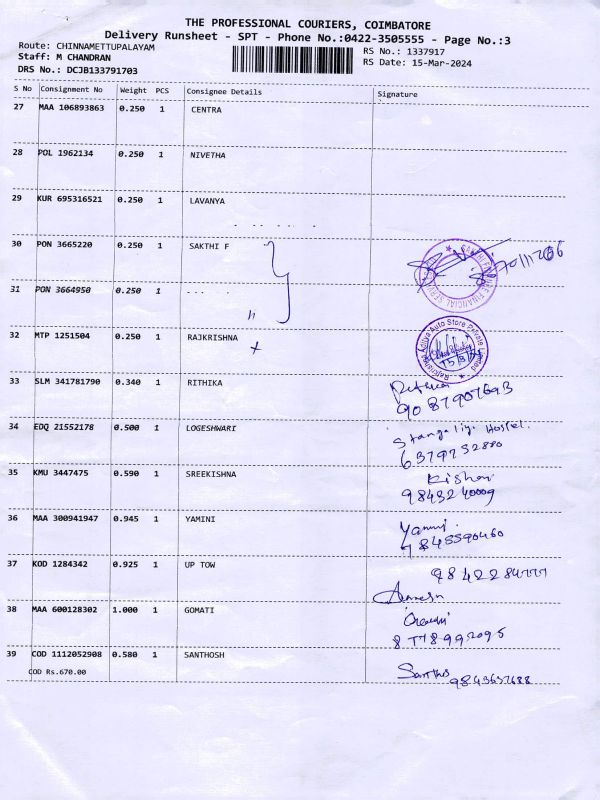 THE PROFESSIONAL COURIERS, COIMBATORE
Delivery Runsheet - SPT - Phone No.:0422-3505555 - Page No.:3
Route: CHINNAMETTUPALAYAM
RS No.: 1337917
Staff: M CHANDRAN
RS Date: 15-Mar-2024
DRS No.: DCJB133791703
S No Consignment No Weight PCS Consignee Details Signature
27 MAA 106893863 0.250 1 CENTRA
28 POL 1962134 0.250 1 NIVETHA
29 KUR 695316521 0.250 1 LAVANYA
30 PON 3665220 0.250 1 SAKTHI F
31 PON 3664950 0.250 1
32 MTP 1251504 0.250 1 RAJKRISHNA
33 SLM 341781790 0.340 1 RITHIKA
9087907693
34 EDQ 21552178 0.500 1 LOGESHWARI
Hostel
6379752880
35 KMU 3447475 0.590 1 SREEKISHNA
Kishor
9843240009
36 MAA 300941947 0.945 1 YAMINI
Yamini
9845590460
37 KOD 1284342 0.925 1 UP TOW
38 MAA 600128302 1.000 1 GOMATI
8778992095
39 COD 1112052908 0.580 1 SANTHOSH
COD Rs.670.00
Santhos